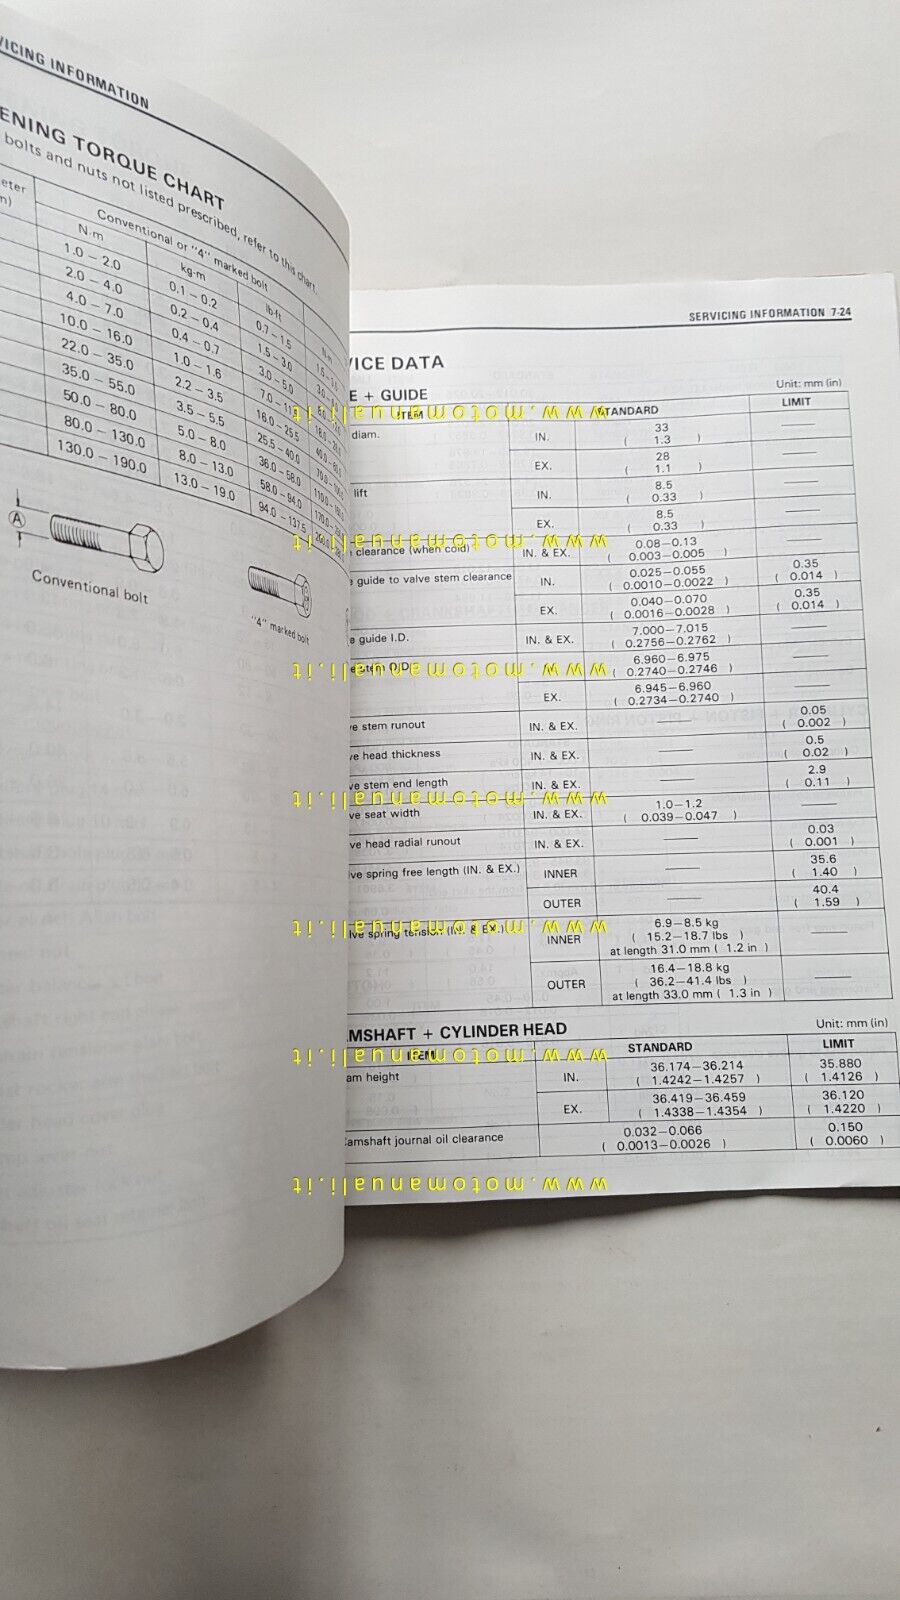 SERVICING INFORMATION
TORQUE CHART
bolts and nuts not listed prescribed, refer to this chart.
Conventional or "4" marked bolt
N·m kg·m lb·ft N·m
1.0 – 2.0 0.1 – 0.2 0.7 – 1.5
2.0 – 4.0 0.2 – 0.4 1.5 – 3.0
4.0 – 7.0 0.4 – 0.7 3.0 – 5.0
10.0 – 16.0 1.0 – 1.6
22.0 – 35.0 2.2 – 3.5 16.0 – 25.5
35.0 – 55.0 3.5 – 5.5 25.5 – 40.0
50.0 – 80.0 5.0 – 8.0 36.0 – 58.0
80.0 – 130.0 8.0 – 13.0 58.0 – 94.0
130.0 – 190.0 13.0 – 19.0 94.0 – 137.5
A
Conventional bolt
"4" marked bolt
SERVICING INFORMATION 7-24
DATA
+ GUIDE Unit: mm (in)
ITEM STANDARD LIMIT
diam. IN. 33 ( 1.3 ) ——
EX. 28 ( 1.1 ) ——
lift IN. 8.5 ( 0.33 ) ——
EX. 8.5 ( 0.33 ) ——
clearance (when cold) IN. & EX. 0.08–0.13 ( 0.003–0.005 ) ——
guide to valve stem clearance IN. 0.025–0.055 ( 0.0010–0.0022 ) 0.35 ( 0.014 )
EX. 0.040–0.070 ( 0.0016–0.0028 ) 0.35 ( 0.014 )
guide I.D. IN. & EX. 7.000–7.015 ( 0.2756–0.2762 ) ——
stem O.D. 6.960–6.975 ( 0.2740–0.2746 ) ——
EX. 6.945–6.960 ( 0.2734–0.2740 ) ——
stem runout IN. & EX. —— 0.05 ( 0.002 )
head thickness IN. & EX. —— 0.5 ( 0.02 )
stem end length IN. & EX. —— 2.9 ( 0.11 )
seat width IN. & EX. 1.0–1.2 ( 0.039–0.047 ) ——
head radial runout IN. & EX. —— 0.03 ( 0.001 )
spring free length (IN. & EX.) INNER —— 35.6 ( 1.40 )
OUTER —— 40.4 ( 1.59 )
spring tension (IN. & EX.) INNER 6.9–8.5 kg ( 15.2–18.7 lbs ) at length 31.0 mm ( 1.2 in ) ——
OUTER 16.4–18.8 kg ( 36.2–41.4 lbs ) at length 33.0 mm ( 1.3 in ) ——
MSHAFT + CYLINDER HEAD Unit: mm (in)
ITEM STANDARD LIMIT
am height IN. 36.174–36.214 ( 1.4242–1.4257 ) 35.880 ( 1.4126 )
EX. 36.419–36.459 ( 1.4338–1.4354 ) 36.120 ( 1.4220 )
Camshaft journal oil clearance 0.032–0.066 ( 0.0013–0.0026 ) 0.150 ( 0.0060 )
www.motomanuali.it
www.motomanuali.it
www.motomanuali.it
www.motomanuali.it
www.motomanuali.it
www.motomanuali.it
www.motomanuali.it